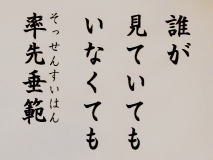 誰が
見ていても
いなくても
そっせんすいはん
率先垂範